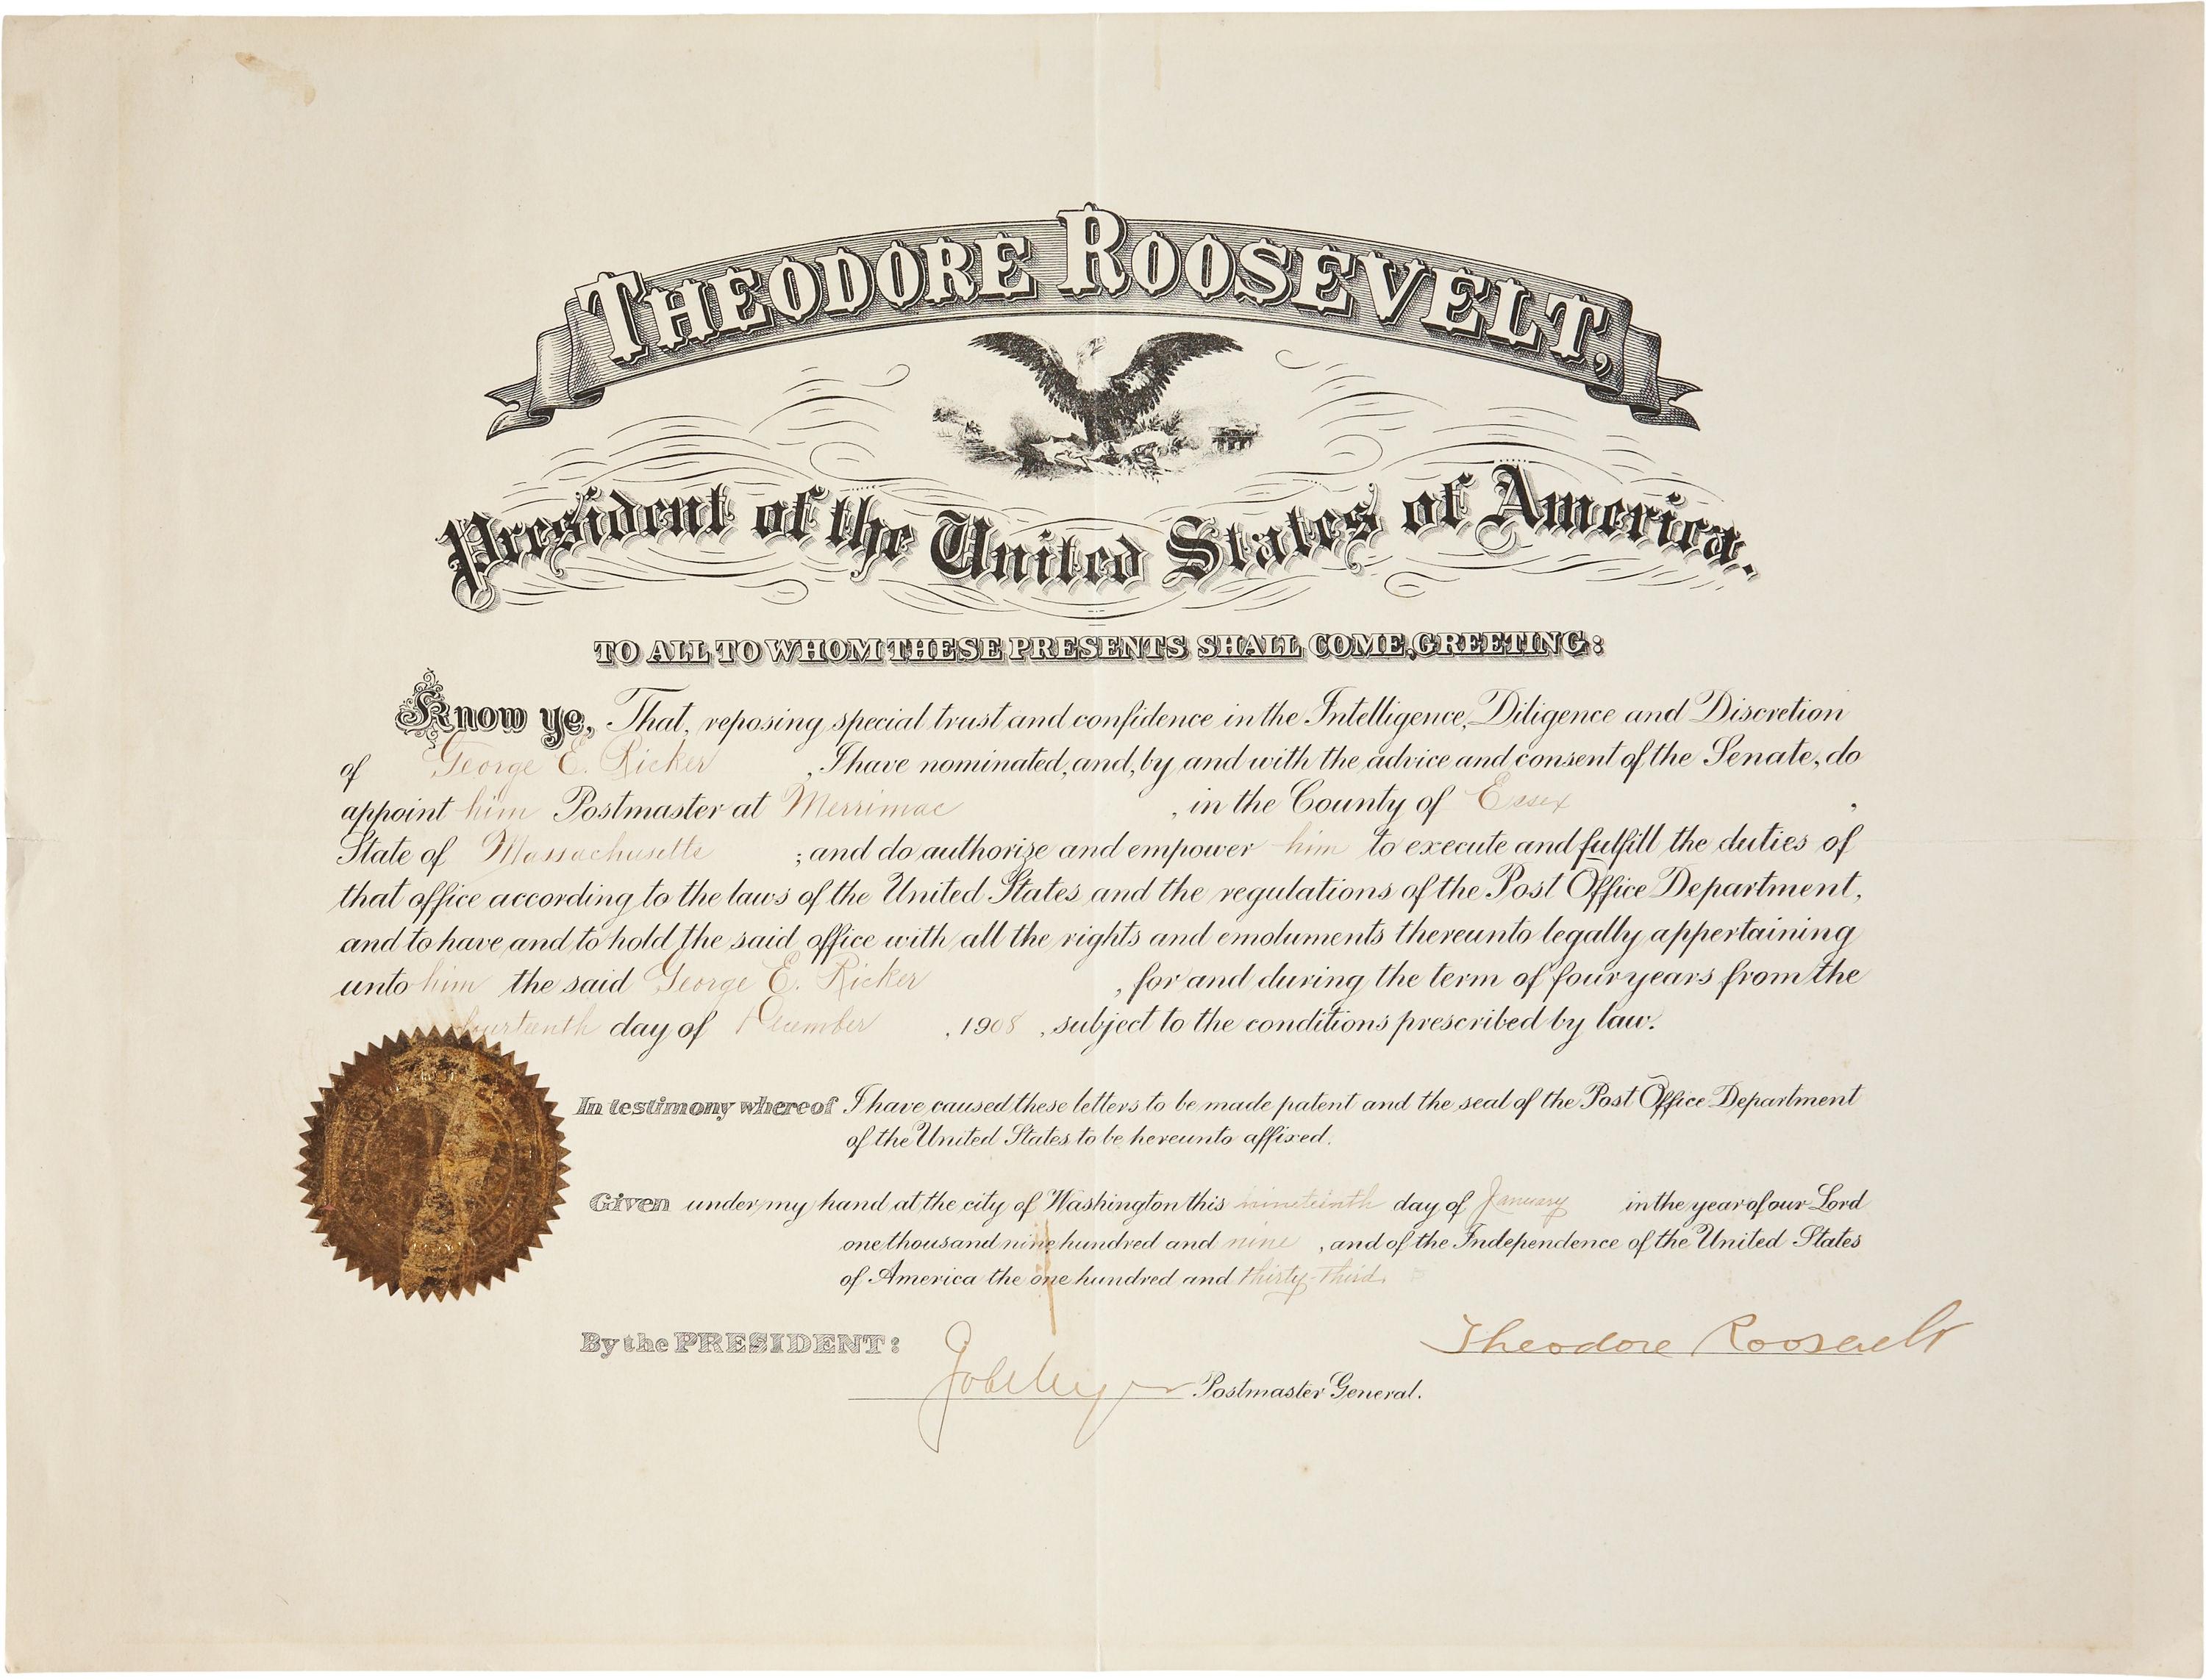 THEODORE ROOSEVELT,
President of the United States of America.
TO ALL TO WHOM THESE PRESENTS SHALL COME, GREETING:
Know ye, That, reposing special trust and confidence in the Intelligence, Diligence and Discretion
of George E. Ricker, I have nominated, and, by and with the advice and consent of the Senate, do
appoint him Postmaster at Merrimac, in the County of Essex,
State of Massachusetts; and do authorize and empower him to execute and fulfill the duties of
that office according to the laws of the United States and the regulations of the Post Office Department,
and to have and to hold the said office with all the rights and emoluments thereunto legally appertaining
unto him the said George E. Ricker, for and during the term of four years from the
day of December, 1908, subject to the conditions prescribed by law.
In testimony whereof I have caused these letters to be made patent and the seal of the Post Office Department
of the United States to be hereunto affixed.
Given under my hand at the city of Washington this nineteenth day of January in the year of our Lord
one thousand nine hundred and nine, and of the Independence of the United States
of America the one hundred and thirty-third.
By the PRESIDENT:
Theodore Roosevelt
Postmaster General.